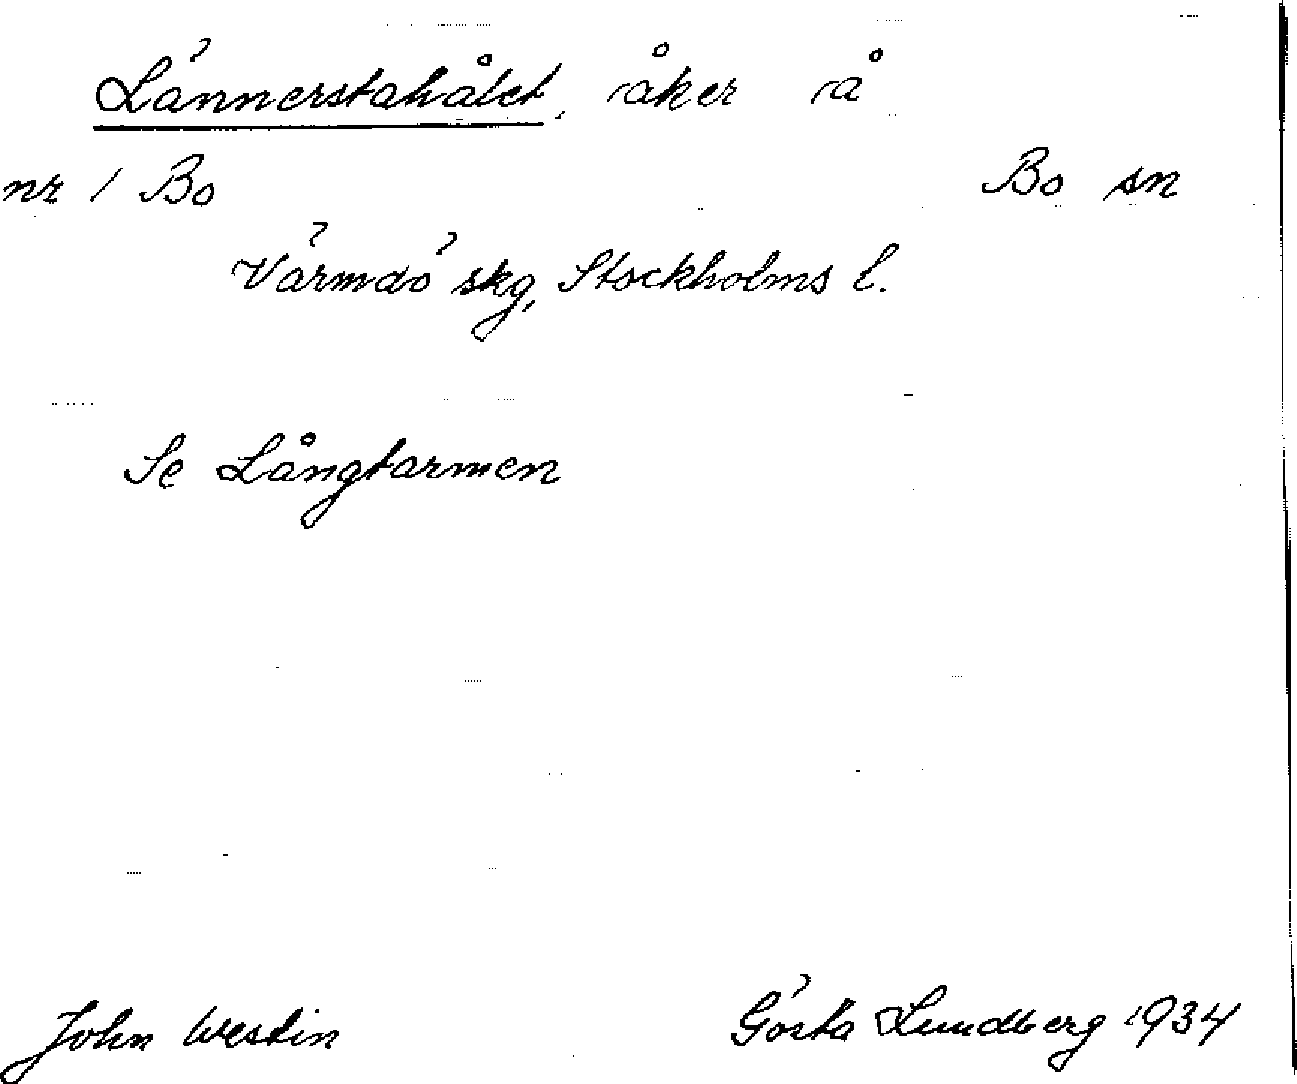 Lännerstahålet, åker å
nr 1 Bo Bo sn
Värmdö skg, Stockholms l.
Se Långtarmen
John Westin Gösta Lundberg 1934